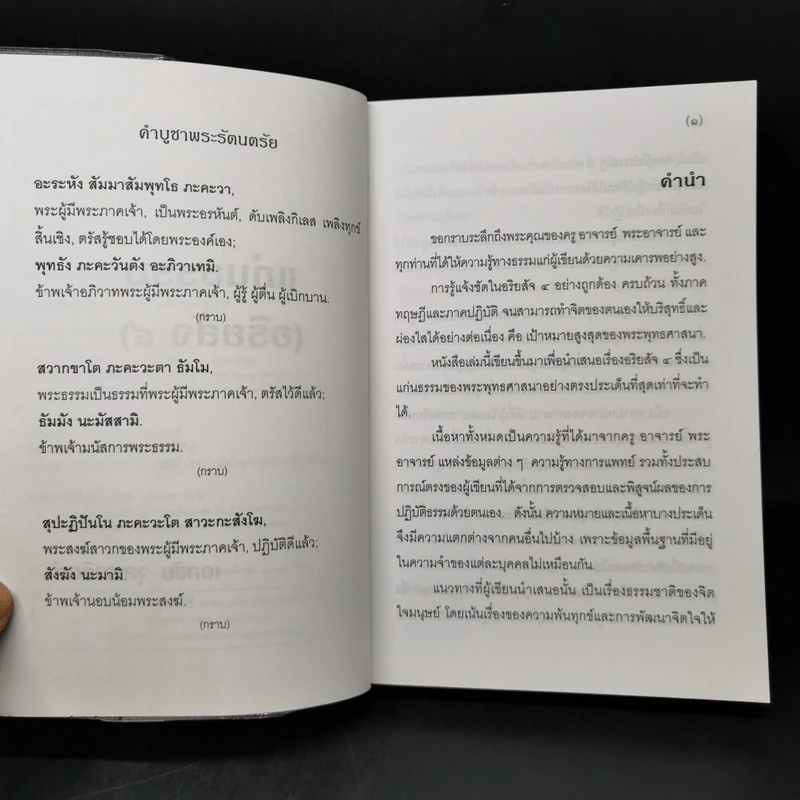 คำบูชาพระรัตนตรัย
อะระหัง สัมมาสัมพุทโธ ภะคะวา,
พระผู้มีพระภาคเจ้า, เป็นพระอรหันต์, ดับเพลิงกิเลส เพลิงทุกข์
สิ้นเชิง, ตรัสรู้ชอบได้โดยพระองค์เอง;
พุทธัง ภะคะวันตัง อะภิวาเทมิ.
ข้าพเจ้าอภิวาทพระผู้มีพระภาคเจ้า, ผู้รู้ ผู้ตื่น ผู้เบิกบาน.
(กราบ)
สวากขาโต ภะคะวะตา ธัมโม,
พระธรรมเป็นธรรมที่พระผู้มีพระภาคเจ้า, ตรัสไว้ดีแล้ว;
ธัมมัง นะมัสสามิ.
ข้าพเจ้ามนัสการพระธรรม.
(กราบ)
สุปะฏิปันโน ภะคะวะโต สาวะกะสังโฆ,
พระสงฆ์สาวกของพระผู้มีพระภาคเจ้า, ปฏิบัติดีแล้ว;
สังฆัง นะมามิ.
ข้าพเจ้านอบน้อมพระสงฆ์.
(กราบ)
(๑)
คำนำ
ขอกราบระลึกถึงพระคุณของครู อาจารย์ พระอาจารย์ และ
ทุกท่านที่ได้ให้ความรู้ทางธรรมแก่ผู้เขียนด้วยความเคารพอย่างสูง.
การรู้แจ้งชัดในอริยสัจ ๔ อย่างถูกต้อง ครบถ้วน ทั้งภาค
ทฤษฎีและภาคปฏิบัติ จนสามารถทำจิตของตนเองให้บริสุทธิ์และ
ผ่องใสได้อย่างต่อเนื่อง คือ เป้าหมายสูงสุดของพระพุทธศาสนา.
หนังสือเล่มนี้เขียนขึ้นมาเพื่อนำเสนอเรื่องอริยสัจ ๔ ซึ่งเป็น
แก่นธรรมของพระพุทธศาสนาอย่างตรงประเด็นที่สุดเท่าที่จะทำ
ได้.
เนื้อหาทั้งหมดเป็นความรู้ที่ได้มาจากครู อาจารย์ พระ
อาจารย์ แหล่งข้อมูลต่าง ๆ ความรู้ทางการแพทย์ รวมทั้งประสบ
การณ์ตรงของผู้เขียนที่ได้จากการตรวจสอบและพิสูจน์ผลของการ
ปฏิบัติธรรมด้วยตนเอง. ดังนั้น ความหมายและเนื้อหาบางประเด็น
จึงมีความแตกต่างจากคนอื่นไปบ้าง เพราะข้อมูลพื้นฐานที่มีอยู่
ในความจำของแต่ละบุคคลไม่เหมือนกัน.
แนวทางที่ผู้เขียนนำเสนอนั้น เป็นเรื่องธรรมชาติของจิต
ใจมนุษย์ โดยเน้นเรื่องของความพ้นทุกข์และการพัฒนาจิตใจให้